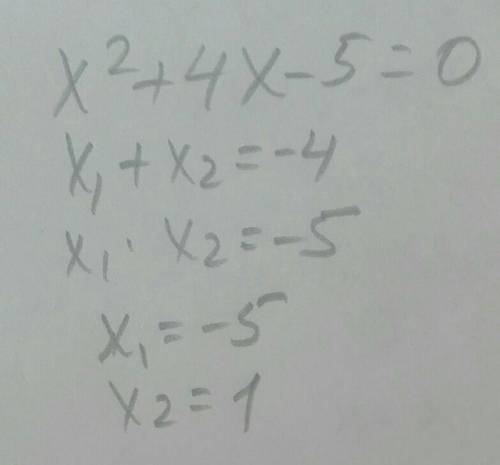 x²+4x-5=0
x₁+x₂=-4
x₁·x₂=-5
x₁=-5
x₂=1